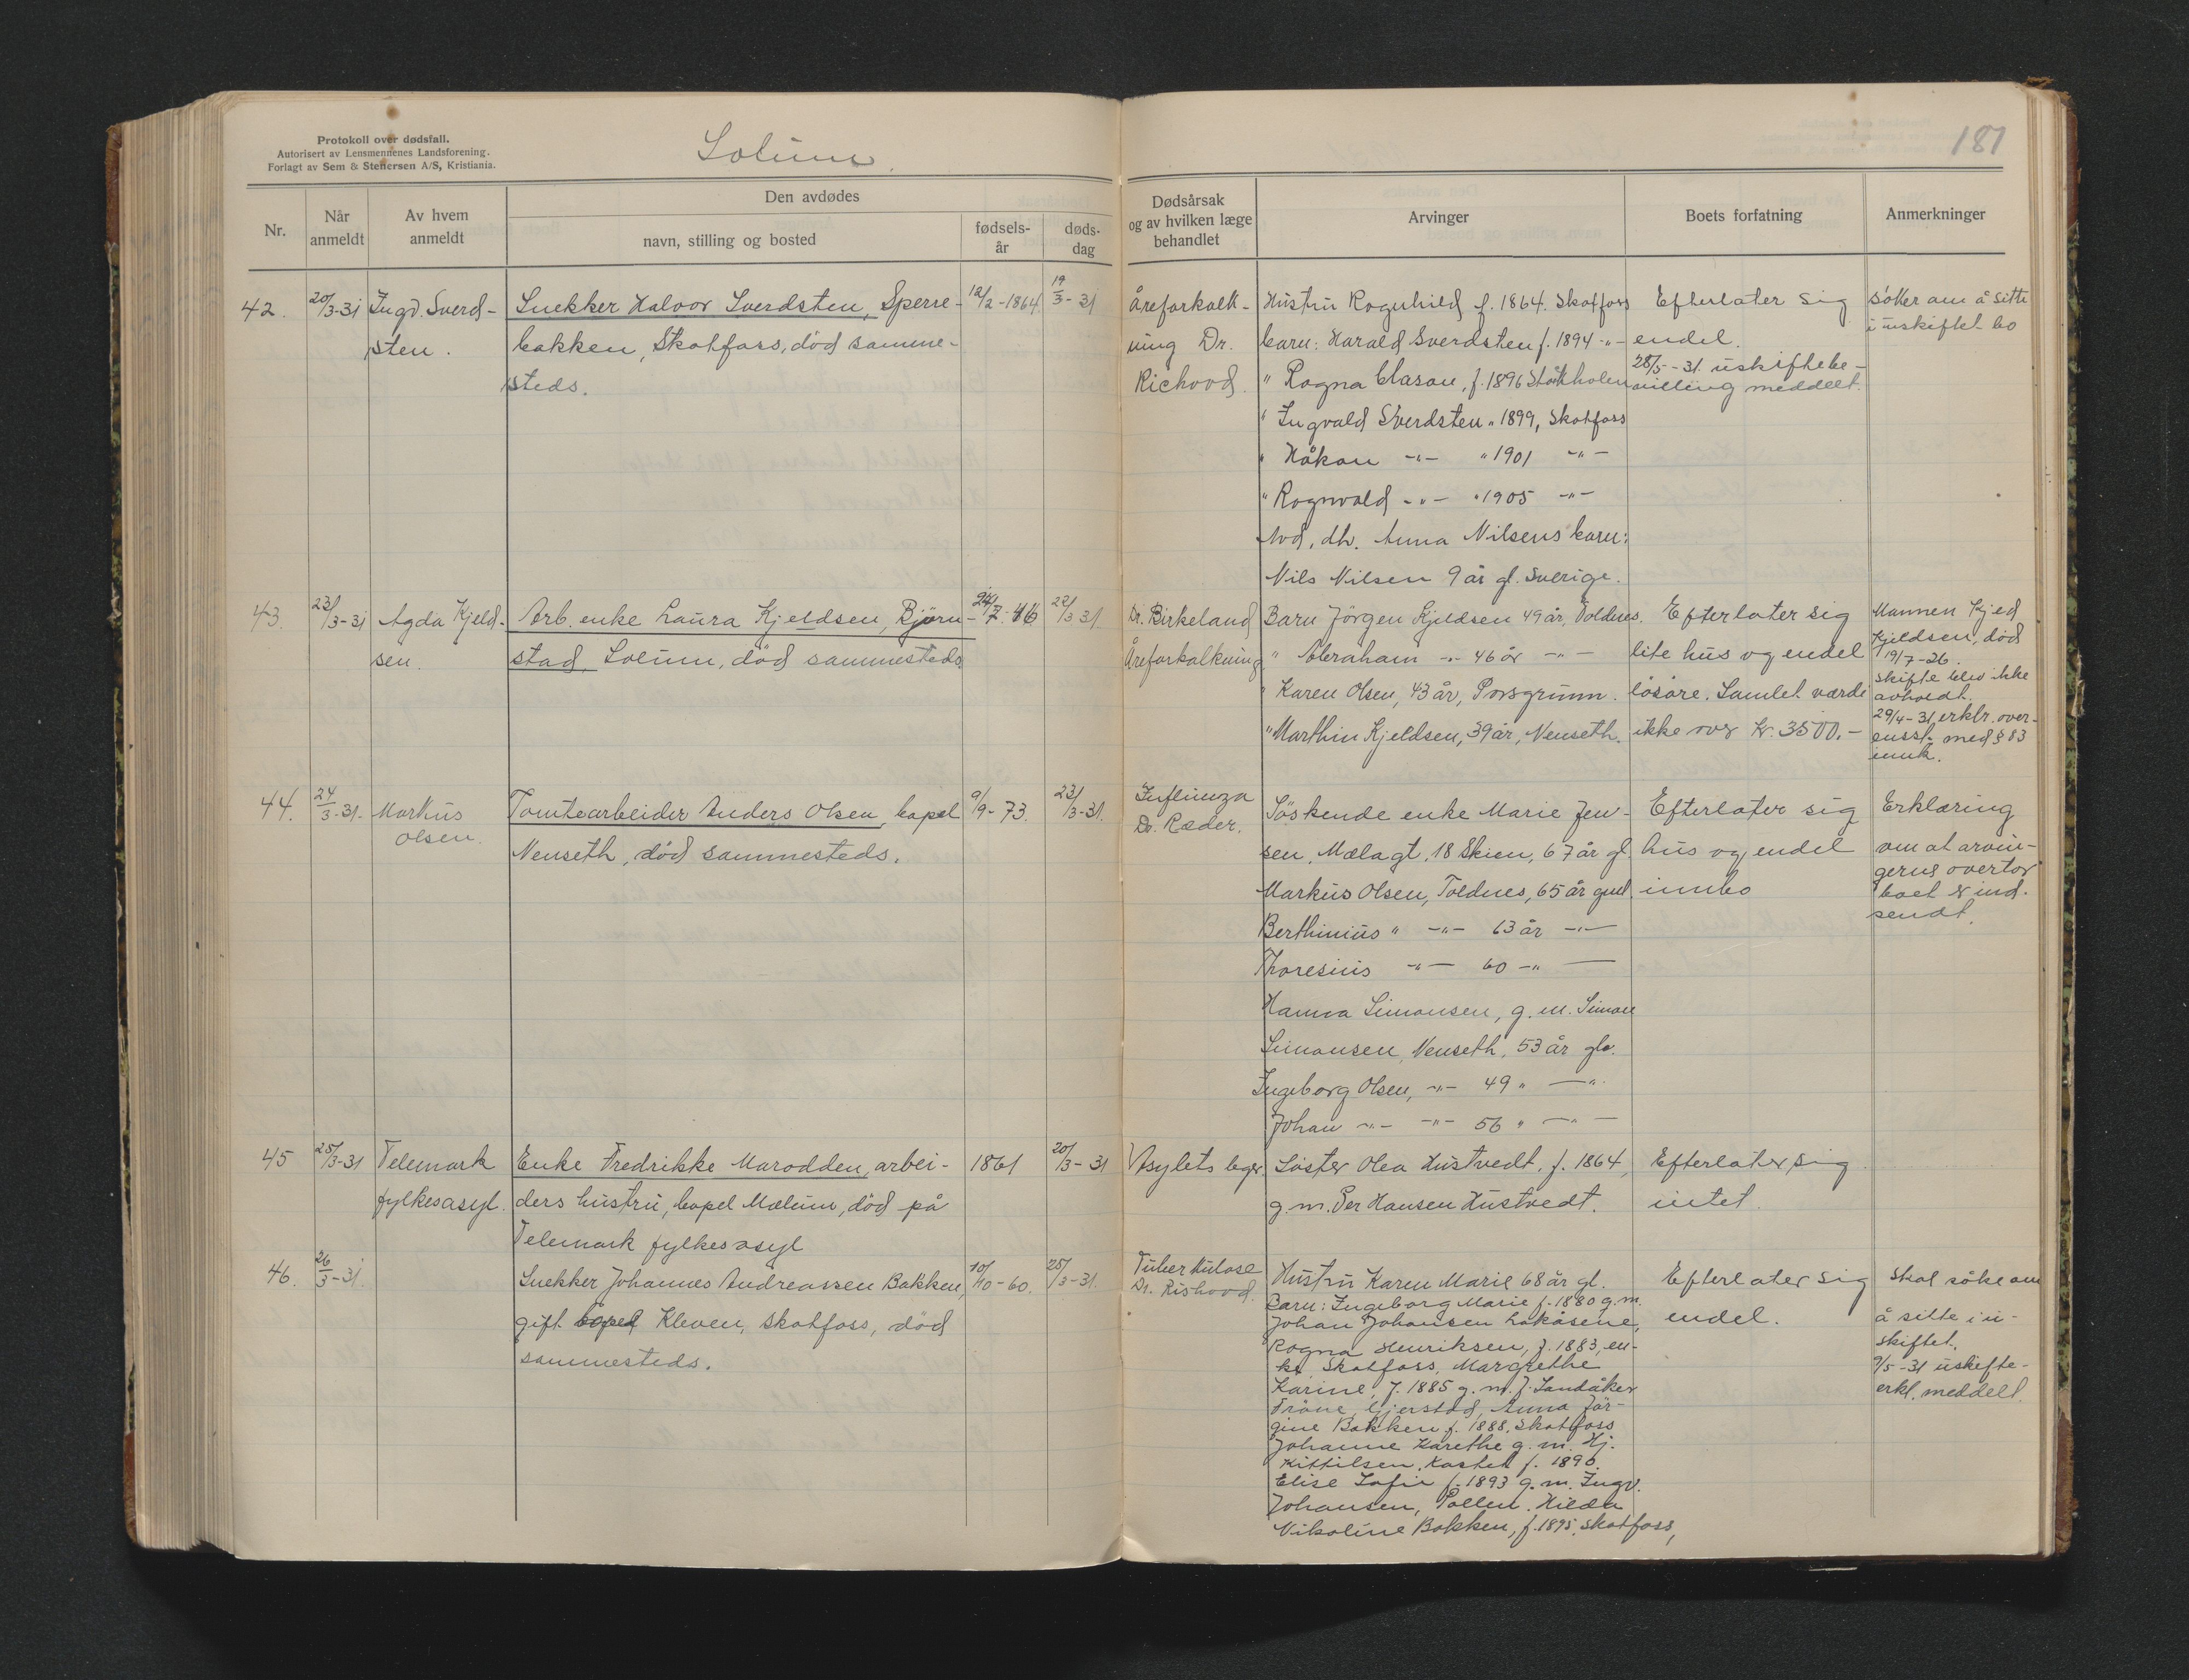 Protokoll over dødsfall.
Autorisert av Lensmennenes Landsforening.
Forlagt av Sem & Stenersen A/S, Kristiania.
Solum
181
Nr.
Når anmeldt
Av hvem anmeldt
Den avdødes
navn, stilling og bosted
fødsels-år
døds-dag
Dødsårsak og av hvilken læge behandlet
Arvinger
Boets forfatning
Anmerkninger
42.
20/3-31
Ingv. Sverd-
sten.
Snekker Halvor Sverdsten, Sperre-
bakken, Skotfoss, död samme-
steds.
12/2-1864
19/3-31
Åreforkalk-
ning Dr.
Richood.
Hustru Rognhild f. 1864. Skotfoss
barn: Harald Sverdsten f. 1894 -"-
" Ragna Clason, f. 1896 Stockholm
" Ingvald Sverdsten " 1899, Skotfoss
" Håkon -"- " 1901 -"-
" Rognvald -"- " 1905 -"-
Avd. dtr. Anna Nilsens barn:
Nils Nilsen 9 år gl. Sverige.
Efterlater sig
endel.
28/5-31 uskiftebe-
villing meddelt.
söker om å sitte
i uskiftet bo
43.
23/3-31
Agda Kjeld-
sen.
Arb. enke Laura Kjeldsen, Björn-
stad, Solum, död sammesteds
22/3 31
Dr. Birkeland
Åreforkalkning
Barn Jörgen Kjeldsen 49 år, Voldnes.
" Abraham -"- 46 år -"-
" Karen Olsen, 43 år, Porsgrunn.
" Marthin Kjeldsen, 39 år, Nenseth.
Efterlater sig
lite hus og endel
lösöre. Samlet værdi
ikke over kr. 3500.-
Mannen Kjed
Kjeldsen, död
19/7-26.
skifte blev ikke
avholdt.
29/4-31 erklr. over-
ensst. med § 83
innk.
44.
24/3-31.
Markus
Olsen.
Tomtearbeider Anders Olsen, kapel
Nenseth, död sammesteds.
9/9-73.
23/3-31.
Influenza
Dr. Ræder.
Söskende enke Marie Jen-
sen, Mælagt. 18 Skien, 67 år gl.
Markus Olsen, Toldnes, 65 år gml.
Berthinius " -"- 63 år -"-
Thoresius -"- 60 -"-
Hanna Simonsen, g. m. Simon
Simonsen, Nenseth, 53 år gl.
Ingeborg Olsen, -"- 49 " -"-
Johan -"- -"- 56 " -"-
Efterlater sig
hus og endel
innbo
Erklæring
om at arvin-
gerne overtar
boet er ind-
sendt.
45
25/3-31
Telemark
fylkesasyl.
Enke Fredrikke Marodden, arbei-
ders hustru, kapel Mælum, död på
Telemark fylkesasyl
1861
20/3-31
Asylets leger
Söster Olea Hustvedt, f. 1864,
g. m. Per Hansen Hustvedt.
Efterlater sig
intet
46.
26/3-31.
Snekker Johannes Andreassen Bakken,
gift Kleven, Skotfoss, död
sammesteds.
10/10-60.
25/3-31.
Tuberkulose
Dr. Rishovd.
Hustru Karen Marie 68 år gl.
Barn: Ingeborg Marie f. 1880 g. m.
Johan Johansen Låkåsene,
Ragna Henriksen, f. 1883, en-
ke, Skotfoss, Margrethe
Karine, f. 1885 g. m. J. Sandåker
Tråne, Gjerstad, Anna Jör-
gine Bakken f. 1888, Skotfoss
Johanne Karethe g. m. Hj.
Kittilsen, Kastet f. 1890.
Elise Sofie f. 1893 g. m. Ingv.
Johansen, Pollen. Hilda
Nikoline Bakken, f. 1895, Skotfoss,
Efterlater sig
endel.
Skal söke om
å sitte i u-
skiftet.
9/5-31 uskifte-
erkl. meddelt.